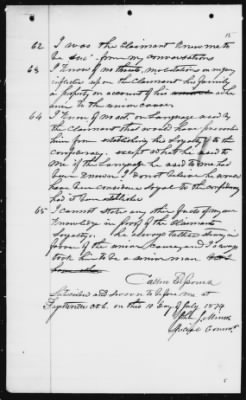 15
62 I was the Claimant Knew me to
be from my conversations
63 I Know of no threats, molestation or injury
inflicted upon the Claimant his family
or property on account of his adhe
rence to the union cause
64 I Know of no act or language used by
the Claimant that would have prevented
him from establishing his loyalty to the
Confederacy except what he said to
me if the language he used to me had
been Known I don't believe he would
have been considered loyal to the confederacy
had it been established
65 I cannot state any other facts of my own
Knowledge in proof of the Claimants
Loyalty. he always talked strong in
favor of the union Cause, and I always
took him to be a union man
Subscribed and sworn to before me at
on this 10 day of July 1874
Special Commr